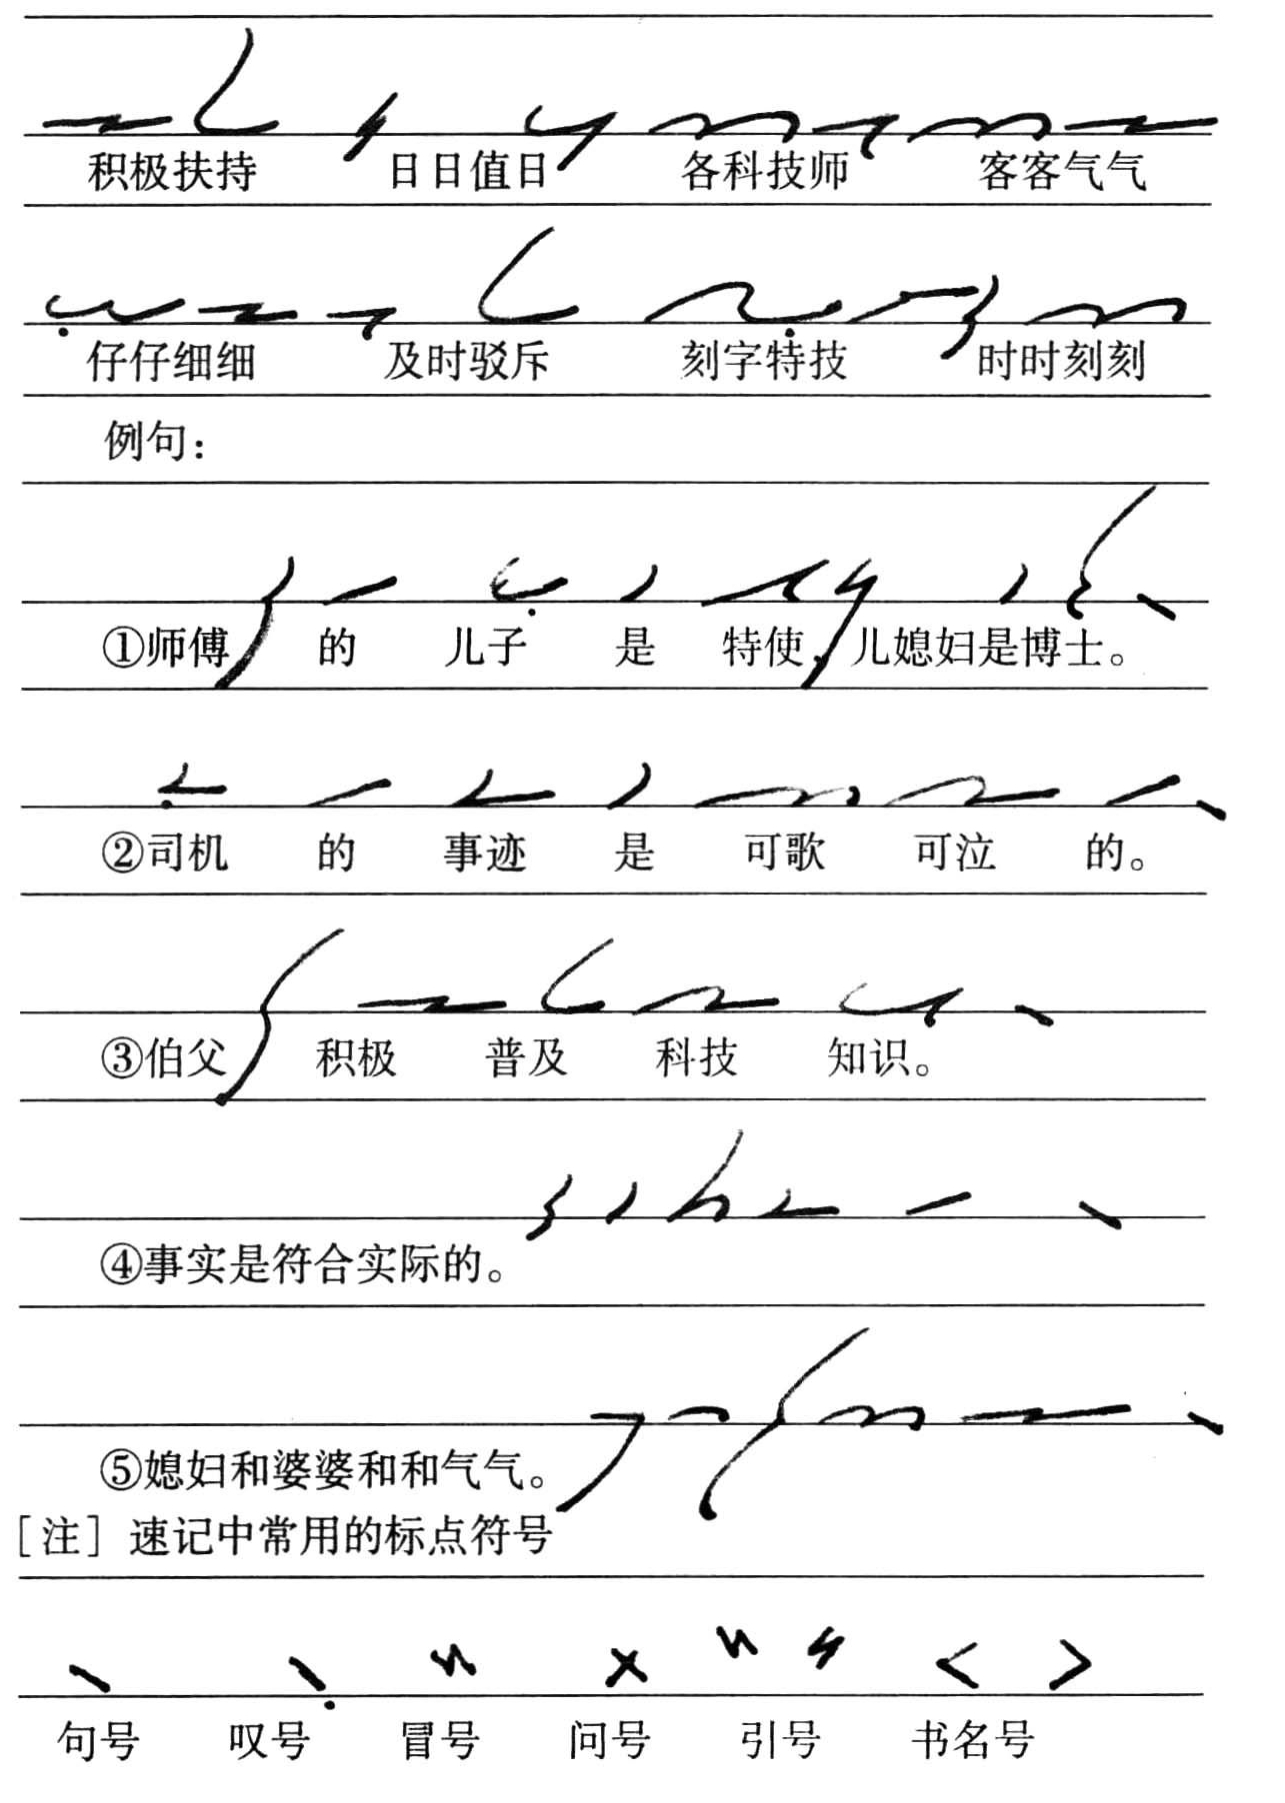 积极扶持 日日值日 各科技师 客客气气
仔仔细细 及时驳斥 刻字特技 时时刻刻
例句：
①师傅 的 儿子 是 特使，儿媳妇是博士。
②司机 的 事迹 是 可歌 可泣 的。
③伯父 积极 普及 科技 知识。
④事实是符合实际的。
⑤媳妇和婆婆和和气气。
［注］速记中常用的标点符号
句号 叹号 冒号 问号 引号 书名号